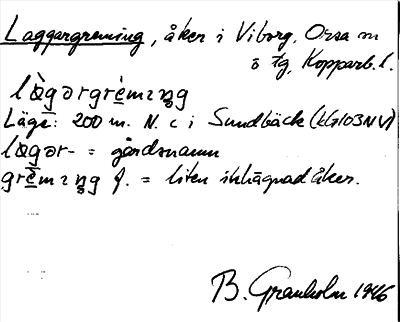 Laggargreming, åker i Viborg, Orsa sn
ö tg, Kopparb. l.
lägərgrèmıŋg
Läge: 200 m. N. c i Sundbäck (LG103NV)
lägər- = gårdsnamn
grèmıŋg f. = liten inhägnad åker.
B. Granholm 1946